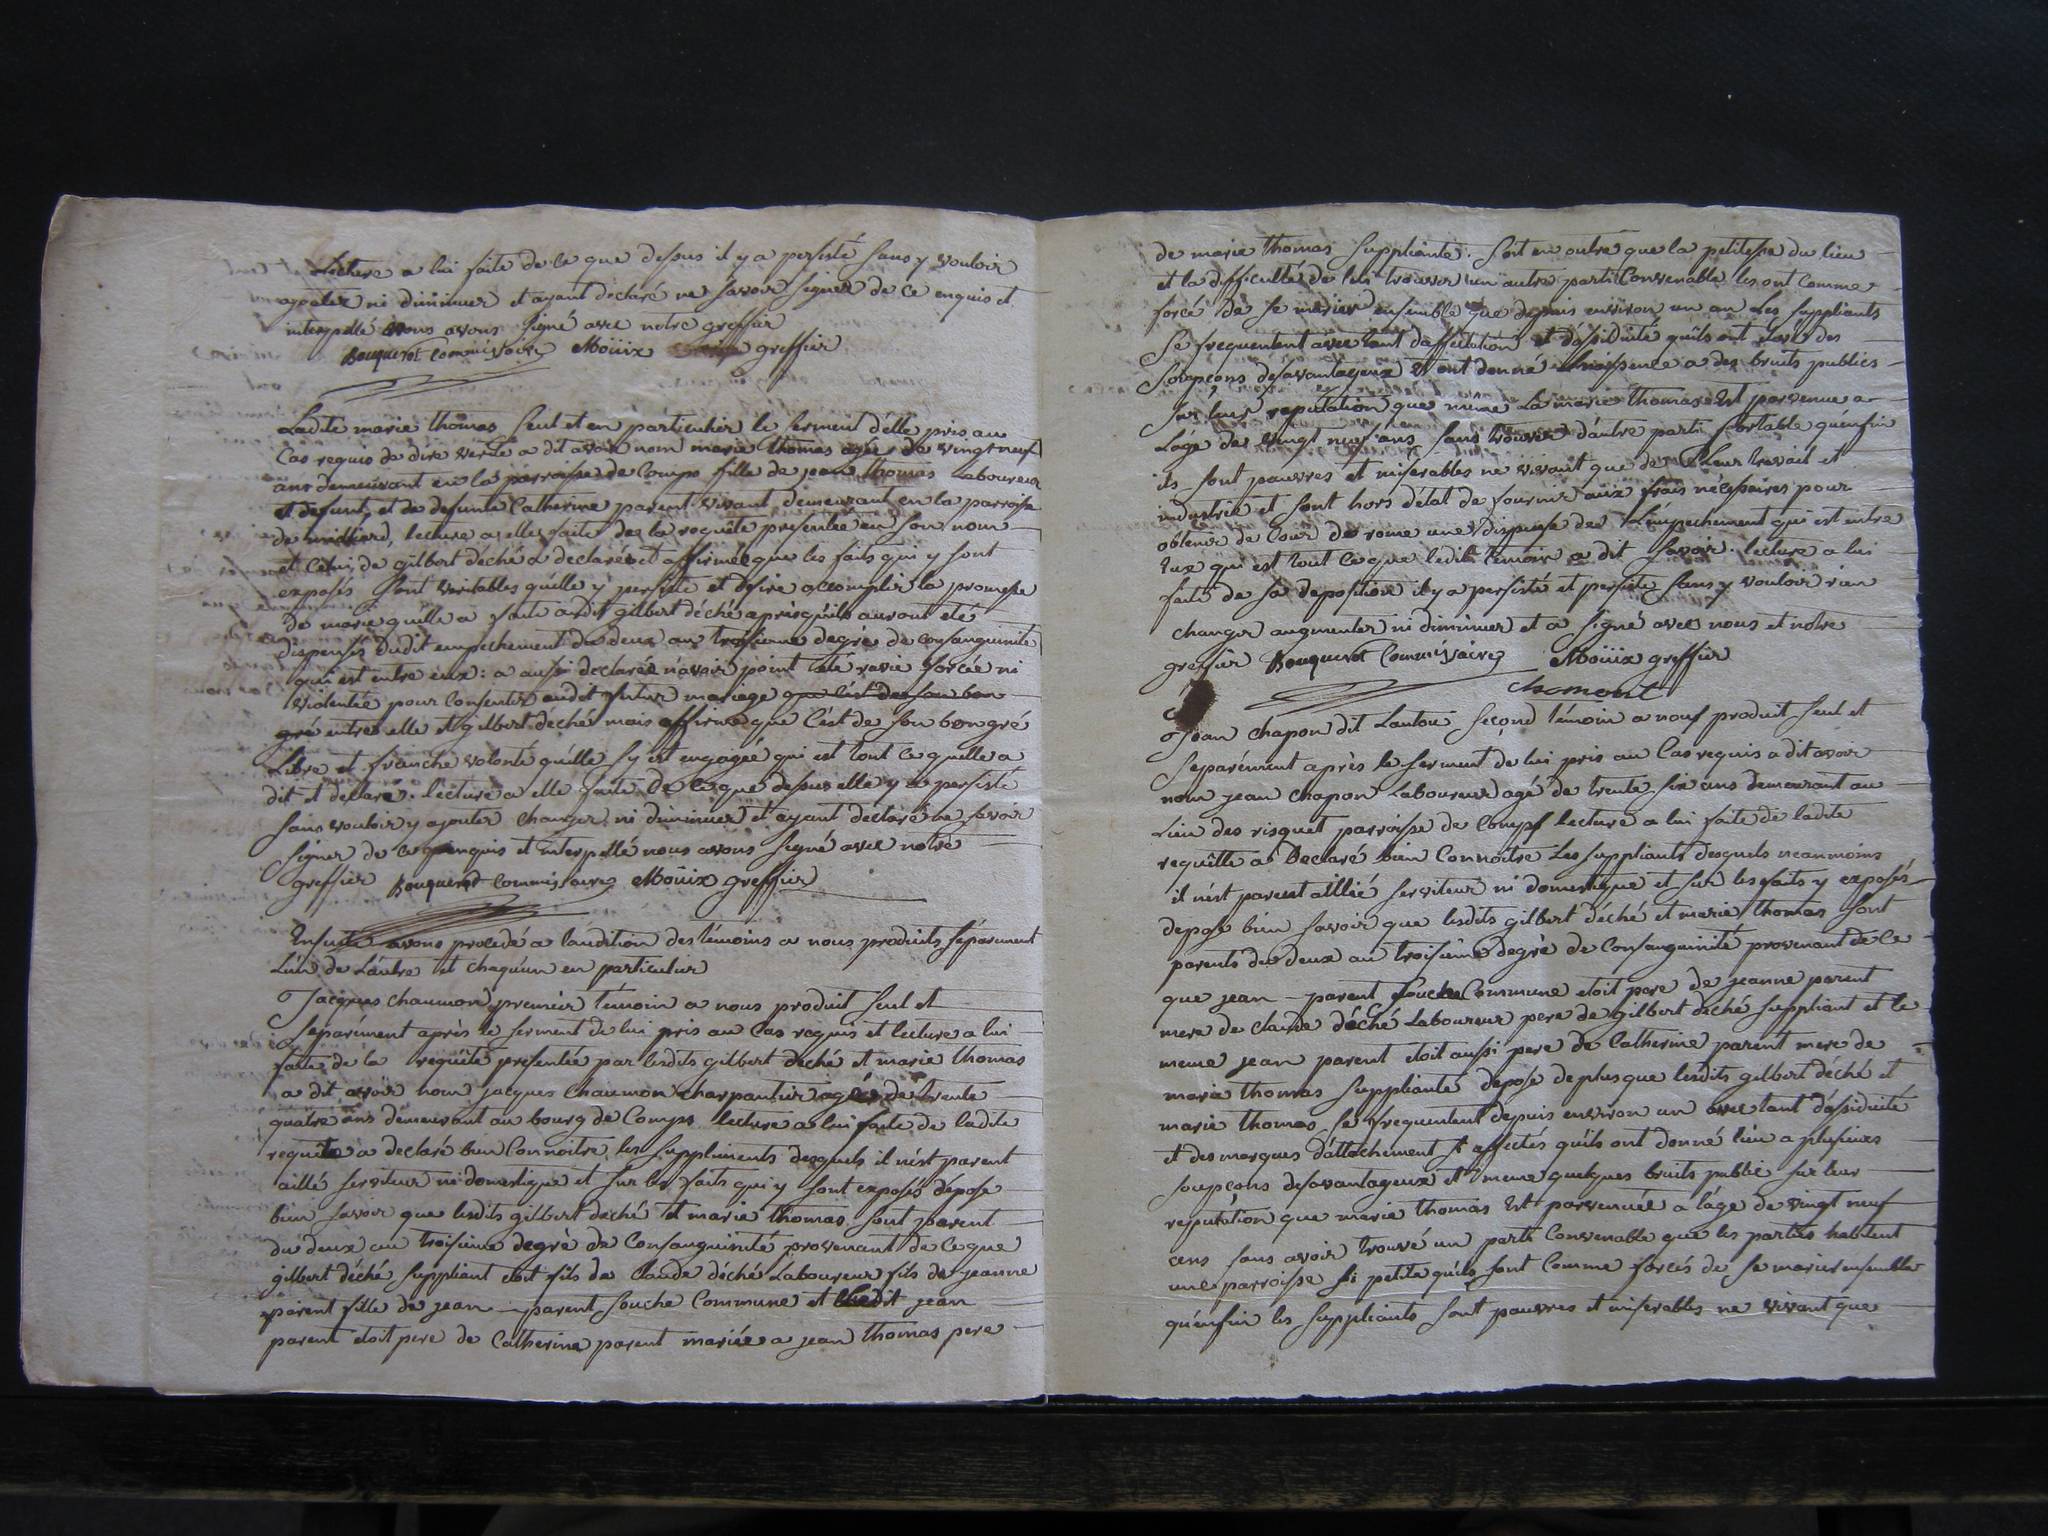 Lecture a lui faite de ce que dessus il y a persisté sans y vouloir
ajouter ni diminuer et ayant declaré ne savoir signer de ce enquis et
interpellé nous avons signé avec notre greffier
Bouquerot Commissaire Moüix greffier
Ladite marie thomas seul et en particulier le serment d'elle pris au
Cas requis de dire verité a dit avoir nom marie thomas agée de vingt neuf
ans demeurant en la parroisse de Comps fille de jean thomas Laboureur
et defunt, et de defunte Catherine parent vivant demeurant en la parroisse
de lecture a elle faite de la requête presentée en son nom
et celui de gilbert déché a declaré et affirmé que les faits qui y sont
exposés sont veritables qu'elle y persiste et desire accomplir la promesse
de marie quelle a faite audit gilbert déché après qu'ils auront eté
dispensés dudit empechement du deux au troisieme degré de consanguinité
qui est entre eux: a aussi declaré n'avoir point eté ravie forcée ni
violentée pour consentir audit futur mariage que c'est de son bon
gré entre elle et gilbert déché mais affirme que c'est de son bon gré
Libre et franche volonté qu'elle s'y est engagée qui est tout ce quelle a
dit et declaré. lecture a elle faite de ce que dessus elle y a persisté
sans vouloir y ajouter changer ni diminuer et ayant declaré ne savoir
signer de ce enquis et interpellé nous avons signé avec notre
greffier Bouquerot Commissaire Moüix greffier
Ensuite avons procedé a l'audition des témoins a nous produits séparement
L'un de L'autre et chaqu'un en particulier
Jacques chaumon premier témoin a nous produit seul et
separément après le serment de lui pris au Cas requis et lecture a lui
faite de la requête presentée par lesdits gilbert déché et marie thomas
a dit avoir nom jacques chaumon charpentier agé de trente
quatre ans demeurant au bourg de Comps lecture a lui faite de ladite
requête a declaré bien Connoitre les suppliants desquels il n'est parent
allié serviteur ni domestique et sur les faits qui y sont exposés dépose
bien savoir que lesdits gilbert déché et marie thomas sont parent
du deux au troisieme degré de Consanguinité provenant de ce que
gilbert déché suppliant etoit fils de Claude déché Laboureur fils de jeanne
parent fille de jean parent souche Commune et ledit jean
parent etoit pere de Catherine parent mariée a jean thomas pere
de marie thomas suppliante. soit en outre que la petitesse du lieu
et la difficulté de lui trouver un autre parti Convenable les ont Comme
forcé de se marier ensemble que depuis environ un an Les suppliants
se frequentent avec tant d'affectation et d'assiduité qu'ils ont élevé des
soupçons desavantageux et ont donné naissance a des bruits publics
sur leur reputation que même La marie thomas est parvenue a
L'age de vingt neuf ans sans trouver d'autre parti sortable qu'enfin
ils sont pauvres et miserables ne vivant que de Leur travail et
industrie et sont hors d'état de fournir aux frais nécessaires pour
obtenir de Cour de rome une dispense de L'empechement qui est entre
eux qui est tout ce que ledit temoin a dit savoir. lecture a lui
faite de sa deposition il y a persisté et persiste sans y vouloir rien
changer augmenter ni diminuer et a signé avec nous et notre
greffier Bouquerot Commissaire Moüix greffier
chomont
Jean chapon dit Lantou second témoin a nous produit seul et
separément après le serment de lui pris au Cas requis a dit avoir
nom jean chapon Laboureur agé de trente six ans demeurant au
Lieu des risquet parroisse de Comps lecture a lui faite de ladite
requête a Declaré bien Connoitre Les suppliants desquels neanmoins
il n'est parent allié serviteur ni domestique et sur les faits y exposés
depose bien savoir que lesdits gilbert déché et marie thomas sont
parents du deux au troisieme degré de Consanguinité provenant de ce
que jean parent souche Commune etoit pere de jeanne parent
mere de claude déché Laboureur pere de gilbert déché suppliant et le
meme jean parent etoit aussi pere de Catherine parent mere de
marie thomas suppliante depose de plus que lesdits gilbert déché et
marie thomas se frequentent depuis environ un avec tant d'assiduité
et des marques d'attachement si affectés qu'ils ont donné lieu a plusieurs
soupçons desavantageux et meme quelques bruits public sur leur
reputation que marie thomas est parvenuée a l'age de vingt neuf
ans sans avoir trouvé un parti Convenable que les parties habitent
une parroisse si petite qu'ils sont Comme forcés de se marier ensemble
qu'enfin les suppliants sont pauvres et miserables ne vivant que